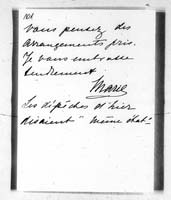 101
vous pensez des
arrangements pris.
Je vous embrasse
tendrement
Marie
Les dépêches d'hier
disaient "même état"